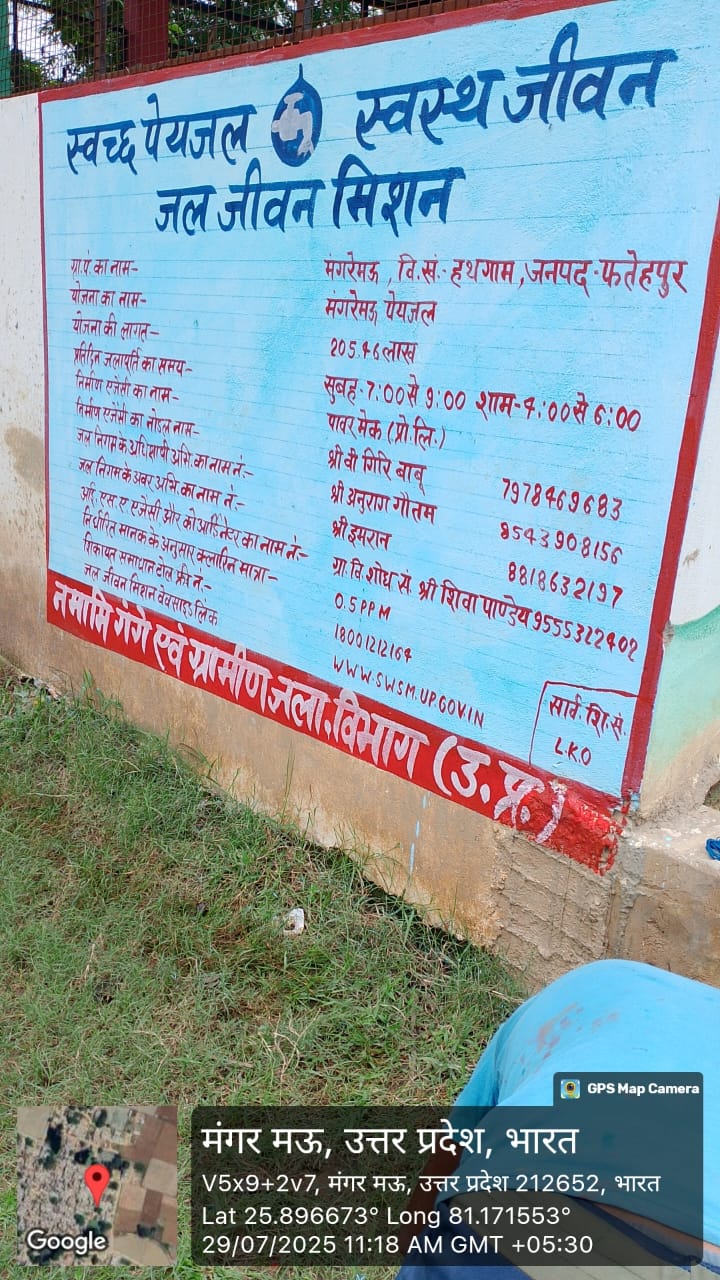 स्वच्छ पेयजल स्वस्थ जीवन
जल जीवन मिशन
ग्रा.पं का नाम- मंगरेमऊ, वि.सं.- हथगाम, जनपद-फतेहपुर
योजना का नाम- मंगरेमऊ पेयजल
योजना की लागत- 205.46 लाख
प्रतिदिन जलापूर्ति का समय- सुबह-7:00से 9:00 शाम-4:00से 6:00
निर्माण एजेंसी का नाम- पावर मेक (प्रो.लि.)
निर्माण एजेंसी का नोडल नाम- श्री वी गिरि बाबू 7978469683
जल निगम के अधिशाषी अभि. का नाम नं.- श्री अनुराग गौतम 8543908156
जल निगम के अवर अभि. का नाम नं.- श्री इमरान 8818632197
आई. एस. ए एजेंसी और को आर्डिनेटर का नाम नं.- ग्रा. वि. शोध सं. श्री शिवा पाण्डेय 9555322402
निर्धारित मानक के अनुसार क्लोरिन मात्रा- 0.5 PPM
शिकायत समाधान टोल फ्री नं.- 18001212164
जल जीवन मिशन वेवसाइड लिंक WWW.SWSM.UP.GOV.IN
सार्व. शि. सं.
L.K.O
नमामि गंगे एवं ग्रामीण जला. विभाग (उ.प्र.)
GPS Map Camera
मंगर मऊ, उत्तर प्रदेश, भारत
V5x9+2v7, मंगर मऊ, उत्तर प्रदेश 212652, भारत
Lat 25.896673° Long 81.171553°
29/07/2025 11:18 AM GMT +05:30
Google